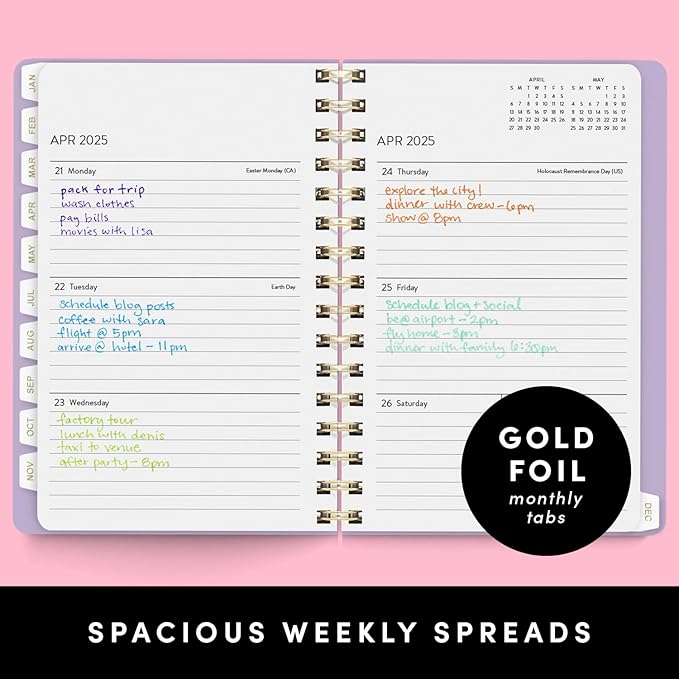 JAN
FEB
MAR
APR
MAY
JUL
AUG
SEP
OCT
NOV
APR 2025
21 Monday Easter Monday (CA)
pack for trip
wash clothes
pay bills
movies with lisa
22 Tuesday Earth Day
schedule blog posts
coffee with sara
flight @ 5pm
arrive @ hotel - 11pm
23 Wednesday
factory tour
lunch with denis
taxi to venue
after party - 8pm
APRIL MAY
S M T W T F S S M T W T F S
1 2 3 4 5 1 2 3
6 7 8 9 10 11 12 4 5 6 7 8 9 10
13 14 15 16 17 18 19 11 12 13 14 15 16 17
20 21 22 23 24 25 26 18 19 20 21 22 23 24
27 28 29 30 25 26 27 28 29 30 31
APR 2025
24 Thursday Holocaust Remembrance Day (US)
explore the city!
dinner with crew - 6pm
show @ 8pm
25 Friday
schedule blog + social
be @ airport - 2pm
fly home - 3pm
dinner with family 6:30pm
26 Saturday
DEC
GOLD
FOIL
monthly
tabs
SPACIOUS WEEKLY SPREADS